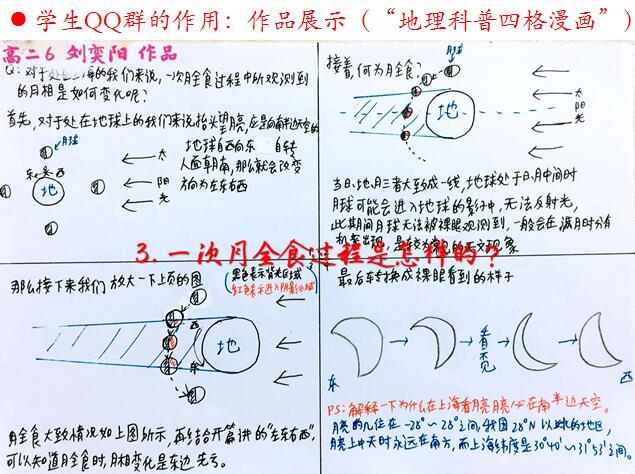 学生QQ群的作用：作品展示（“地理科普四格漫画”）
高二6 刘奕阳 作品
Q：对于处在上海的我们来说，一次月全食过程中所观测到
的月相是如何变化呢？
首先，对于处在地球上的我们来说抬头望月亮，应是向南半边天空的
月球
地球自西向东 自转
人面朝南，那么就会改变
方向为左东右西
东 西
地
太
阳
光
接着，何为月全食？
月球
地
太
阳
光
当日、地、月三者大致成一线，地球处于日、月中间时
月球可能会进入地球的影子中，无法反射光，
此期间月球无法被裸眼观测到，一般会在满月时分有
机会出现，是较为
的天文现象
3. 一次月全食过程是怎样的？
那么接下来我们放大一下上页的图
黑色表示背光区域
红色表示进入阴影区域
西
地
东
月全食大致情况如上图所示，再结合开篇讲的“左东右西”，
可以知道月食时，月相变化是东边先亏。
最后转换成裸眼看到的样子
看
不
见
东
西
PS：解释一下为什么在上海看月亮，月亮会在南半边天空。
月亮的
位在-28°～28°之间，我国28°N以北的地区，
月亮上中天时永远在南方，而上海纬度是30°40′～31°53′之间。